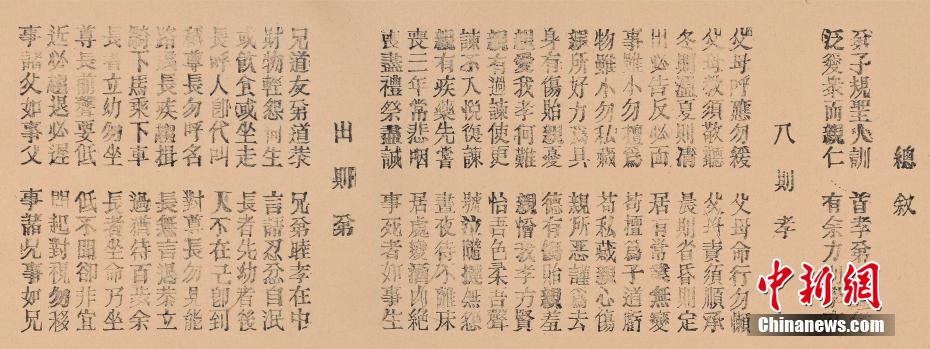 總敘
弟子規聖人訓 首孝弟
汎愛衆而親仁 有余力
入則孝
父母呼應勿緩 父母命行勿懶
父母教須敬聽 父母責須順承
冬則溫夏則凊 晨則省昏則定
出必告反必面 居有常業無變
事雖小勿擅爲 苟擅爲子道虧
物雖小勿私藏 苟私藏親心傷
親所好力爲具 親所惡謹爲去
身有傷貽親憂 德有傷貽親羞
親愛我孝何難 親憎我孝方賢
親有過諫使更 怡吾色柔吾聲
諫不入悅復諫 號泣隨撻無怨
親有疾藥先嘗 晝夜侍不離床
喪三年常悲咽 居處變酒肉絕
喪盡禮祭盡誠 事死者如事生
出則弟
兄道友弟道恭 兄弟睦孝在中
財物輕怨何生 言語忍忿自泯
或飲食或坐走 長者先幼者後
長呼人卽代叫 人不在己卽到
稱尊長勿呼名 對尊長勿見能
路遇長疾趨揖 長無言退恭立
騎下馬乘下車 過猶待百步余
長者立幼勿坐 長者坐命乃坐
尊長前聲要低 低不聞卻非宜
近必趨退必遲 問起對視勿移
事諸父如事父 事諸兄如事兄
中新网
Chinanews.com